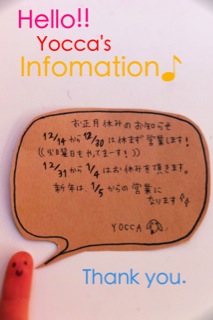 Hello!!
Yocca's
Infomation♪
お正月休みのお知らせ
12/14から12/30は休まず営業します!
((火曜日もやってまーす!))
12/31から1/4はお休みを頂きます。
新年は、1/5からの営業に
なります
YOCCA
Thank you.